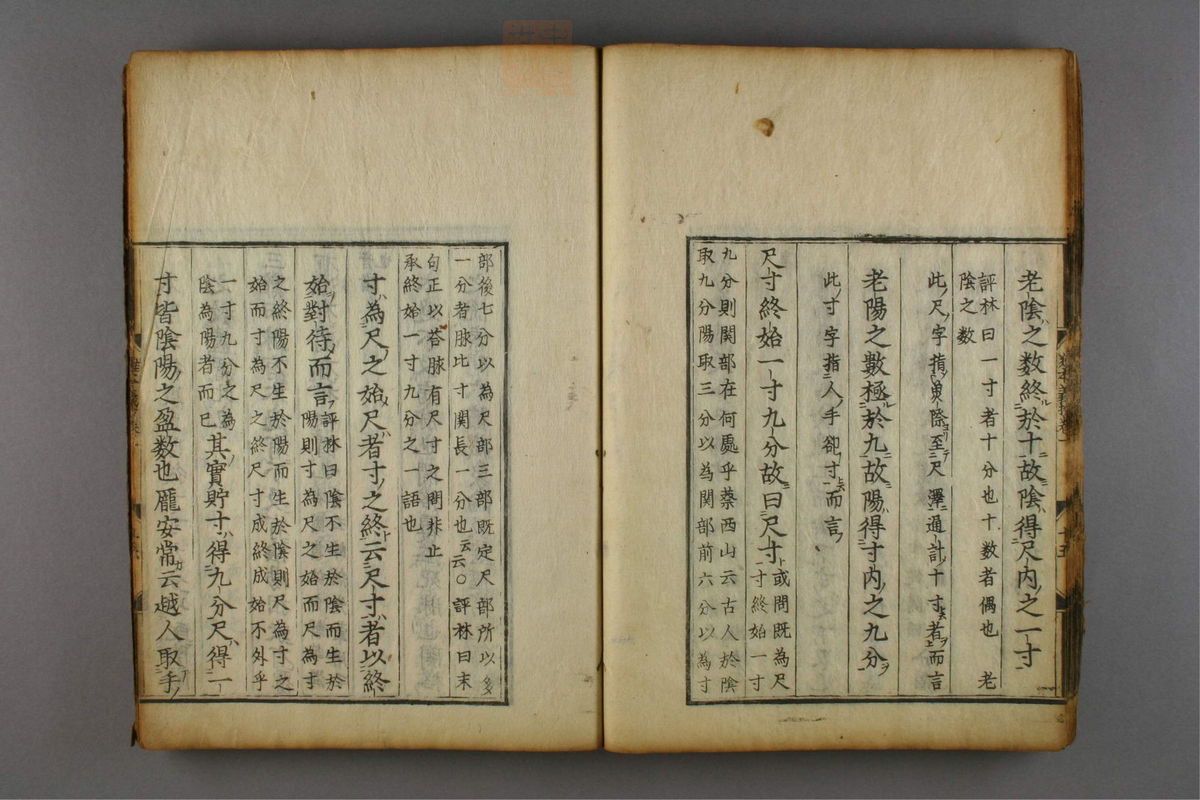 老陰之数終於十故陰得尺内之一寸
評林曰一寸者十分也十数者偶也　老
陰之数
此尺字指魚際至尺澤通計十寸者而言
老陽之數極於九故陽得寸内之九分
此寸字指人手卻寸而言
尺寸終始一寸九分故曰尺寸
或問既為尺
寸終始一寸
九分則関部在何處乎蔡西山云古人於陰
取九分陽取三分以為関部前六分以為寸
部後七分以為尺部三部既定尺部所以多
一分者脉比寸関長一分也云云〇評林曰末
句正以荅脉有尺寸之問非止
承終始一寸九分之一語也
寸為尺之始尺者寸之終云尺寸者以終
始對待而言
評林曰陰不生於陰而生於
陽則寸為尺之始而尺為寸
之終陽不生於陽而生於陰則尺為寸之
始而寸為尺之終尺寸成終成始不外乎
一寸九分之為
陰為陽者而已
其實貯寸得九分尺得一
寸皆陰陽之盈数也龐安常云越人取手